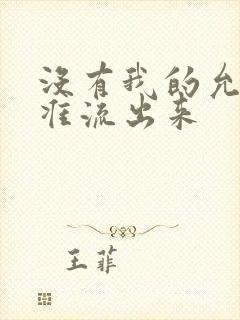 没有我的允
准流出来
王菲